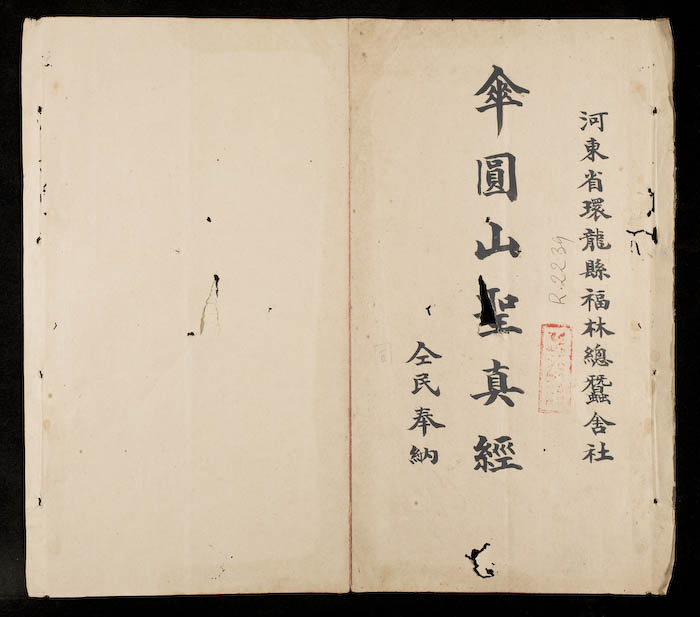 河東省環龍縣福林總蠶舍社
R.2239
傘圓山聖真經
仝民奉納